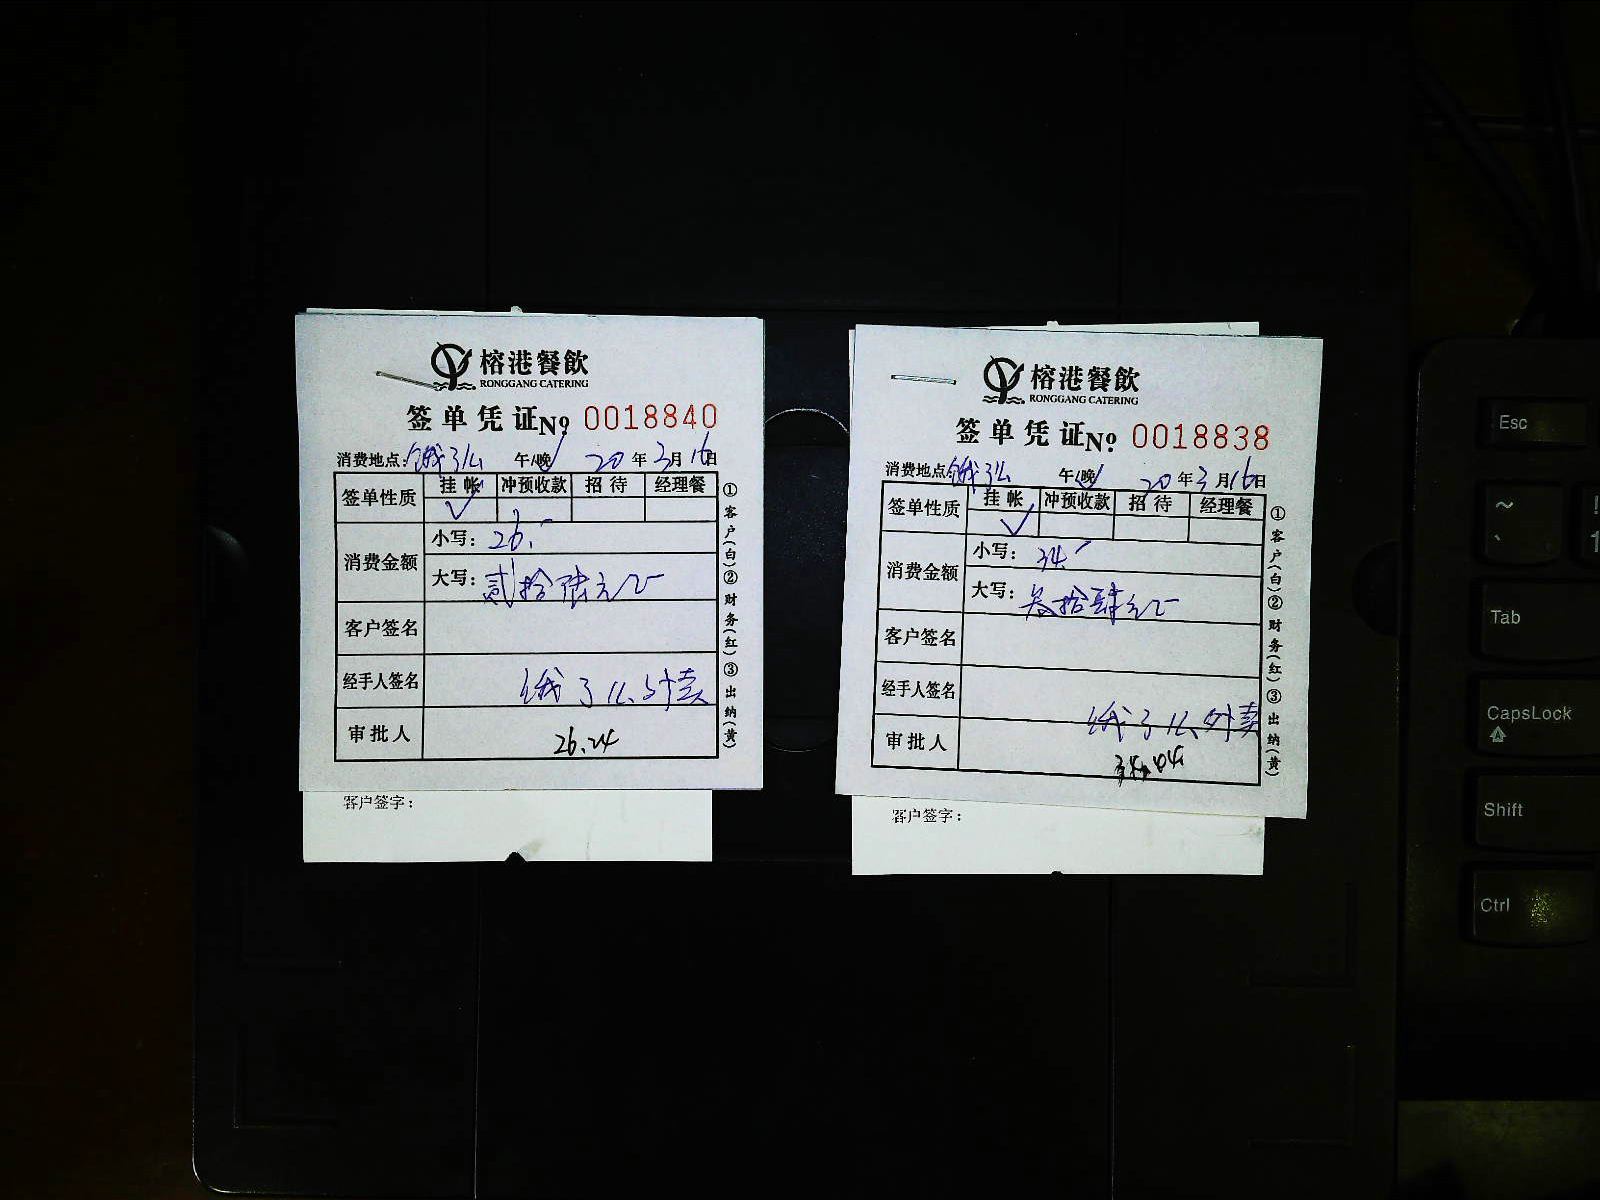 榕港餐飲
RONGGANG CATERING
签单凭证№ 0018840
消费地点: 饿了么 午/晚 20年3月16日
签单性质 挂帐 冲预收款 招待 经理餐
✓
消费金额 小写: 26.-
大写: 贰拾陆元正
客户签名
经手人签名 饿了么外卖
审批人 26.24
①客户(白)②财务(红)③出纳(黄)
客户签字:
榕港餐飲
RONGGANG CATERING
签单凭证№ 0018838
消费地点: 饿了么 午/晚 20年3月16日
签单性质 挂帐 冲预收款 招待 经理餐
✓
消费金额 小写: 34.-
大写: 叁拾肆元正
客户签名
经手人签名 饿了么外卖
审批人
①客户(白)②财务(红)③出纳(黄)
客户签字:
Esc
~
`
!
1
Tab
CapsLock
Shift
Ctrl